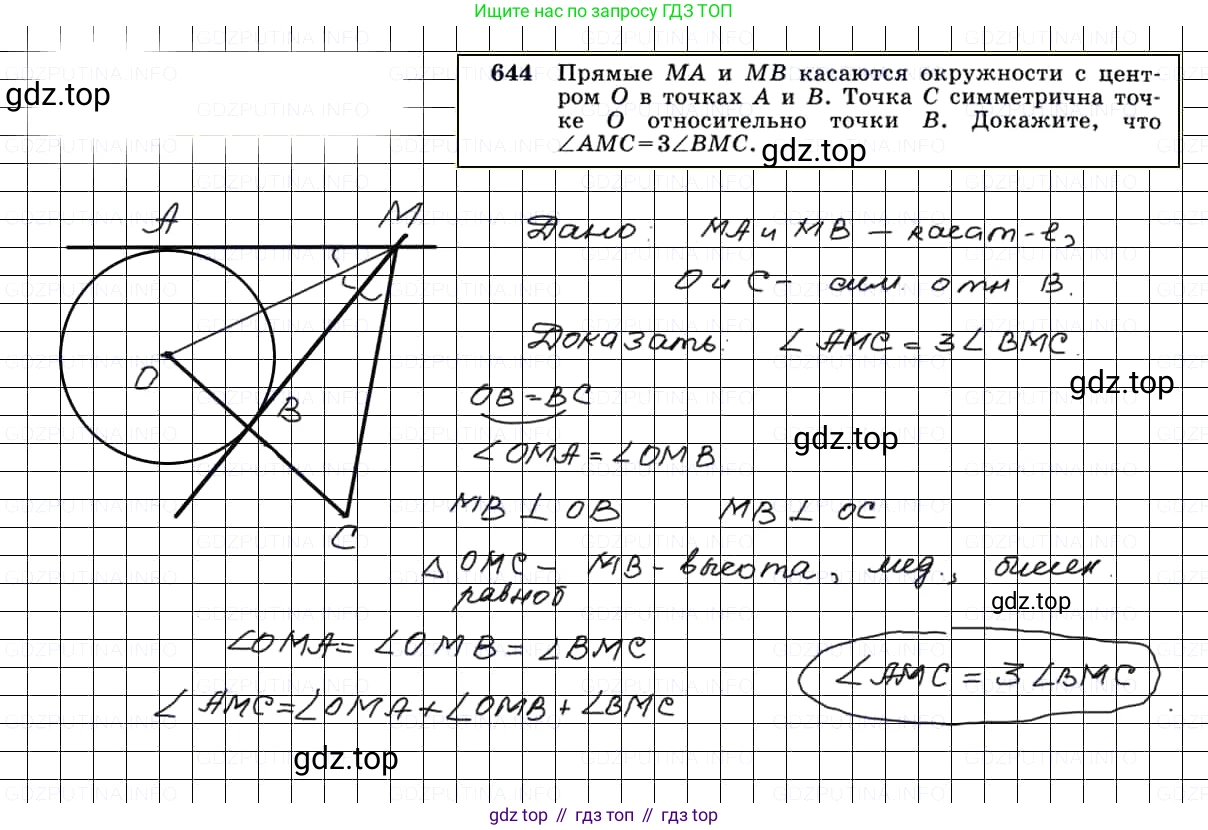 Ищите нас по запросу ГДЗ ТОП
gdz.top
644 Прямые MA и MB касаются окружности с цент-
ром O в точках A и B. Точка C симметрична точ-
ке O относительно точки B. Докажите, что
∠AMC=3∠BMC.
gdz.top
A
M
O
B
C
Дано: MA и MB – касат-е,
O и C – сим. отн B.
Доказать: ∠AMC = 3∠BMC.
gdz.top
OB = BC
gdz.top
∠OMA = ∠OMB
MB ⊥ OB MB ⊥ OC
△ OMC – MB – высота, мед., биссек.
равноб
gdz.top
∠OMA = ∠OMB = ∠BMC
∠AMC = 3∠BMC.
∠AMC = ∠OMA + ∠OMB + ∠BMC
gdz.top
gdz top // гдз топ // gdz top
GDZPUTINA.INFO